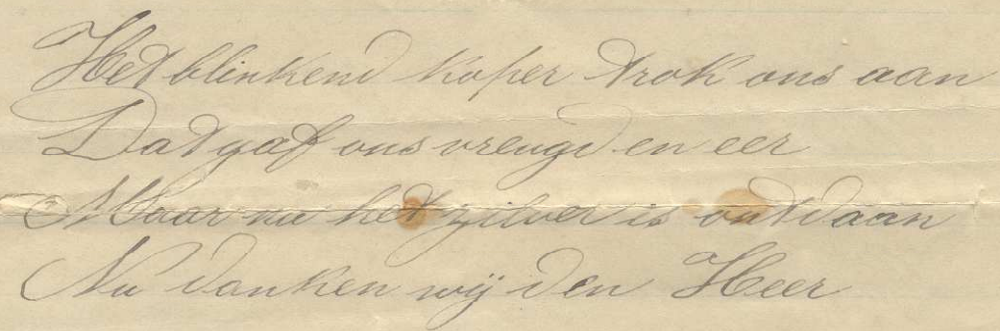 Het blinkend koper trok ons aan
Dat gaf ons vreugd en eer
Maar nu het zilver is ontdaan
Nu danken wij den Heer